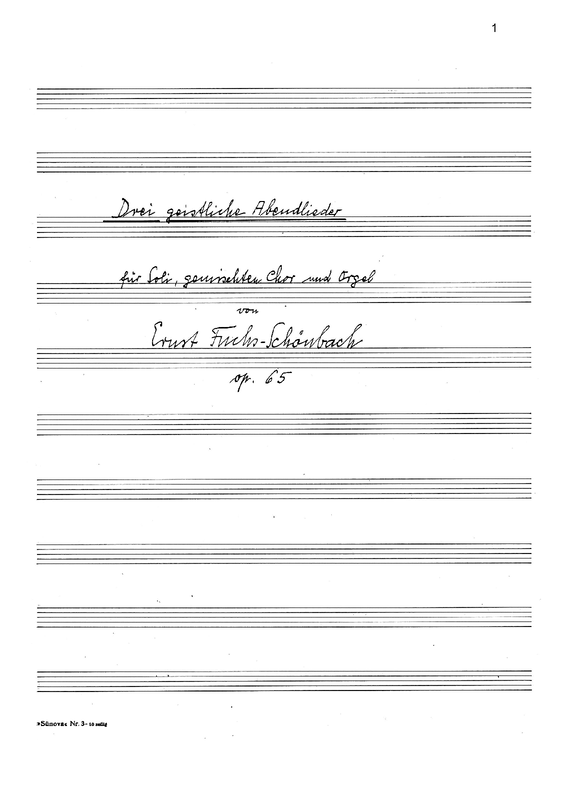 1
Drei geistliche Abendlieder
für Soli, gemischten Chor und Orgel
von
Ernst Fuchs-Schönbach
op. 65
»Sünova« Nr. 3 - 10 zeilig